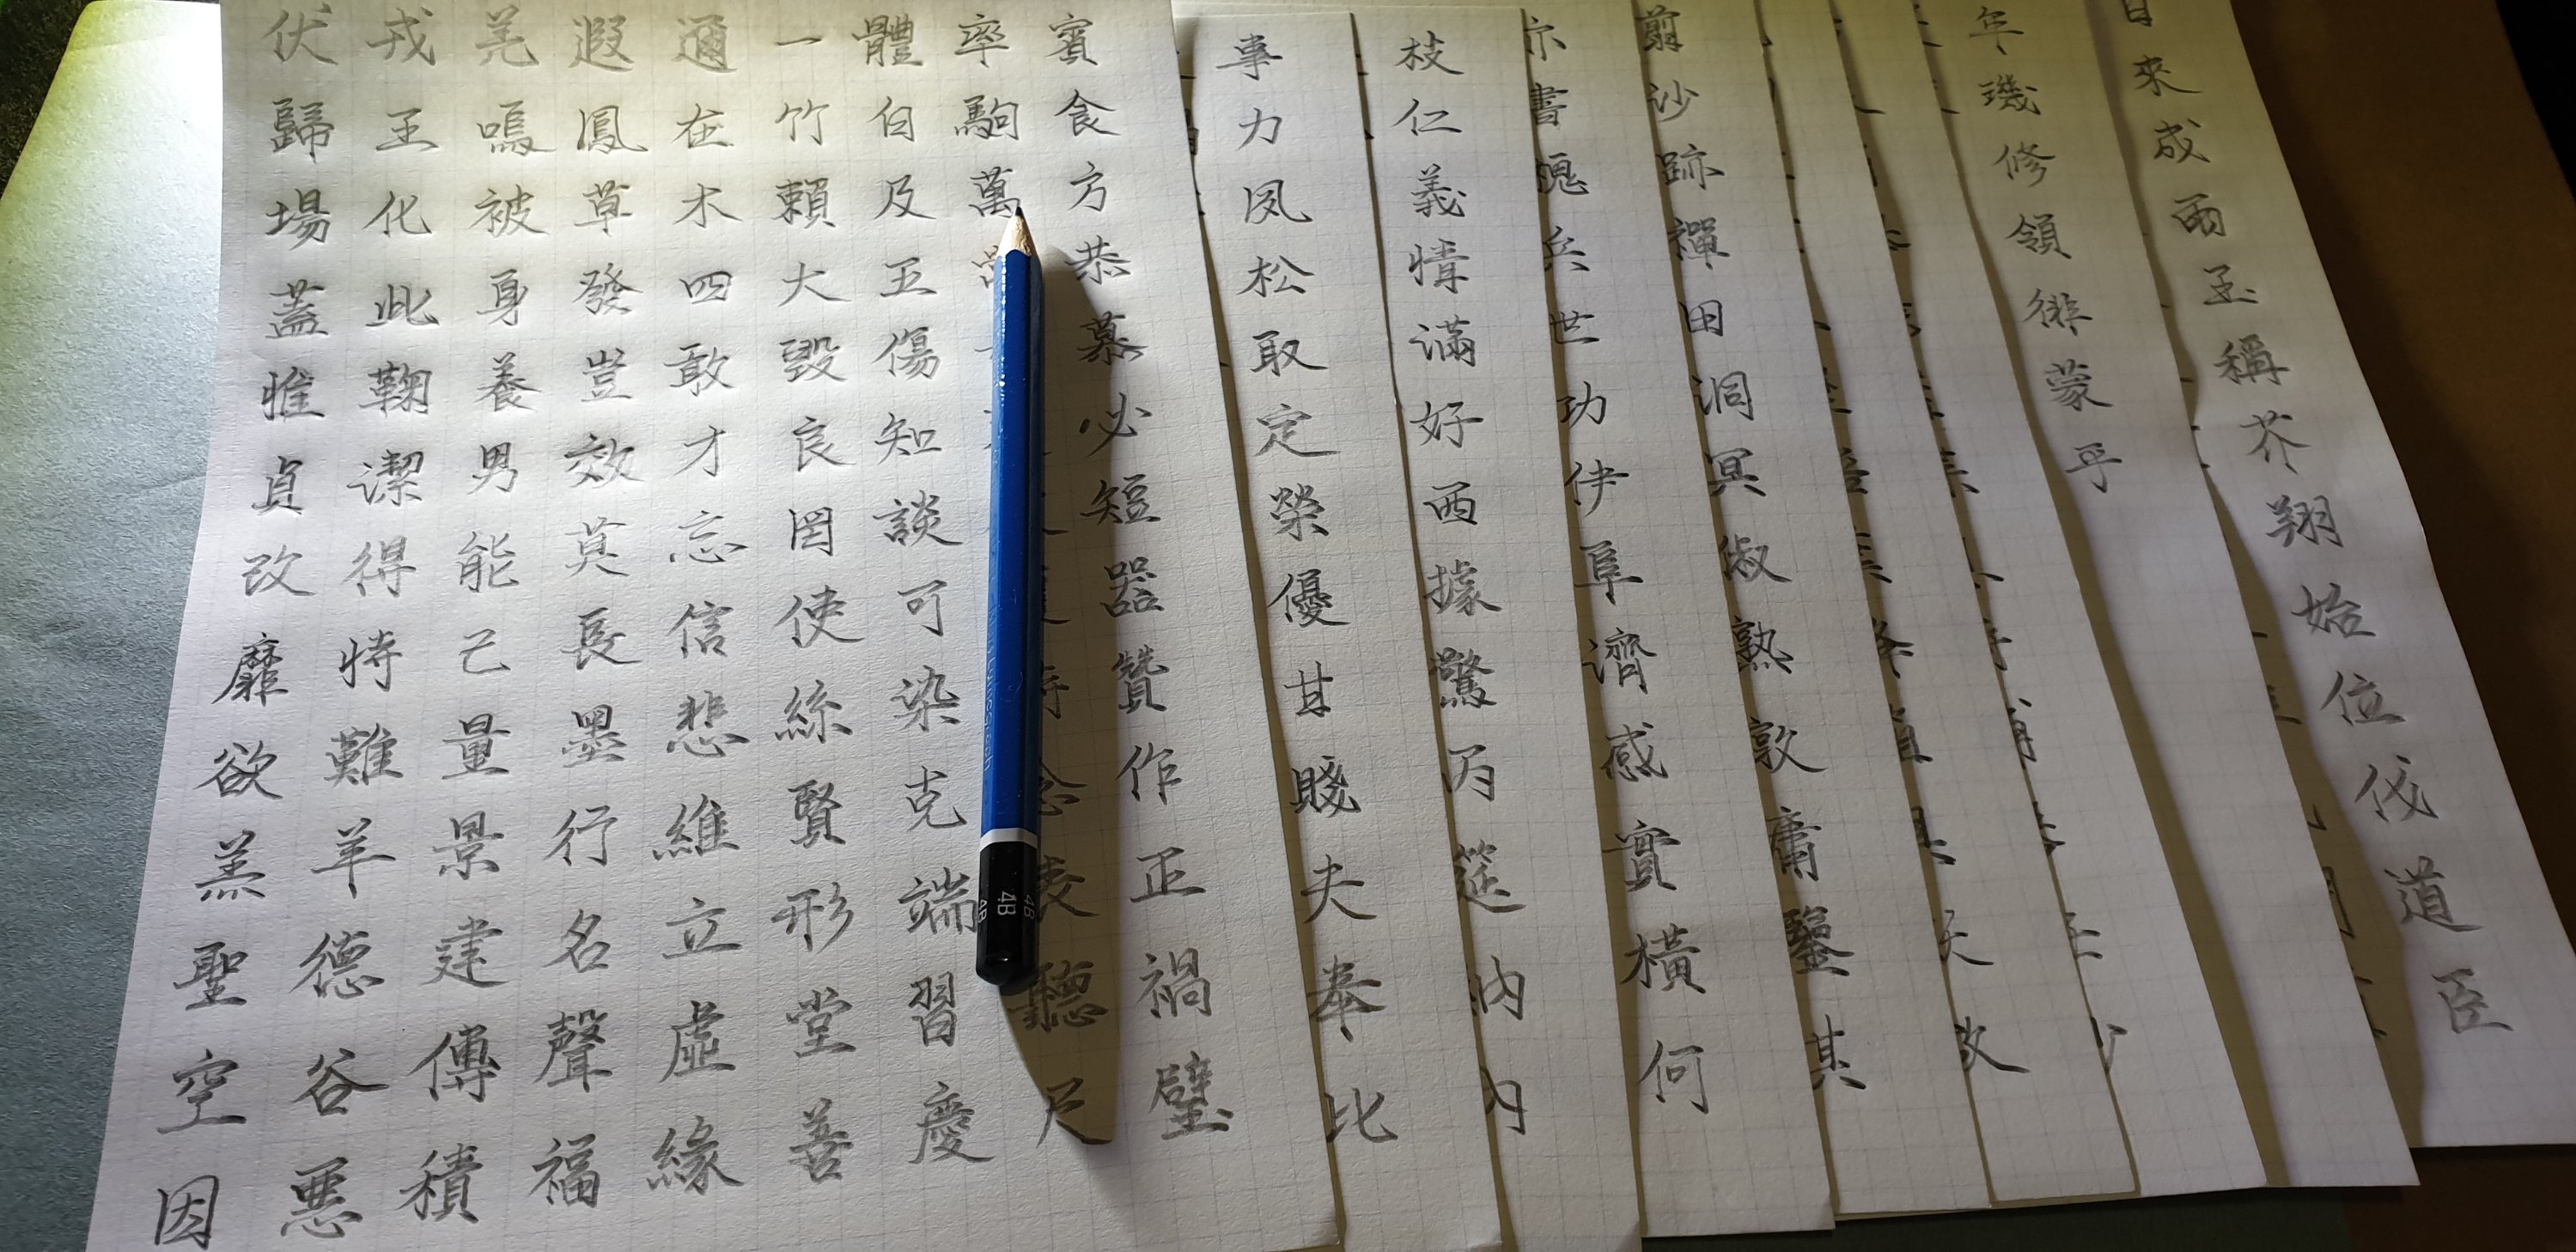 伏戎羌遐邇一體率賓
歸王嗚鳳在竹白駒食
場化被草木賴及萬方
蓋此身發四大五恭
惟鞠養豈敢毀傷慕
貞潔男效才良知必
改得能莫忘罔談短
靡恃己長信使可器
欲難量墨悲絲染詩贊
羔羊景行維賢克念作
聖德建名立形端表正
空谷傳聲虛堂習聽禍
因惡積福緣善慶尺璧
事力夙松取定榮優甘賤夫奉比
枝仁義情滿好西據驚丙筵納內
亦書槐兵世功伊阜濟感實橫何
翦沙跡禪田洞冥俶熟敦庸鑒其
年璣修領徘蒙乎
日來成雨玉稱芥翔始位伐道臣
4B